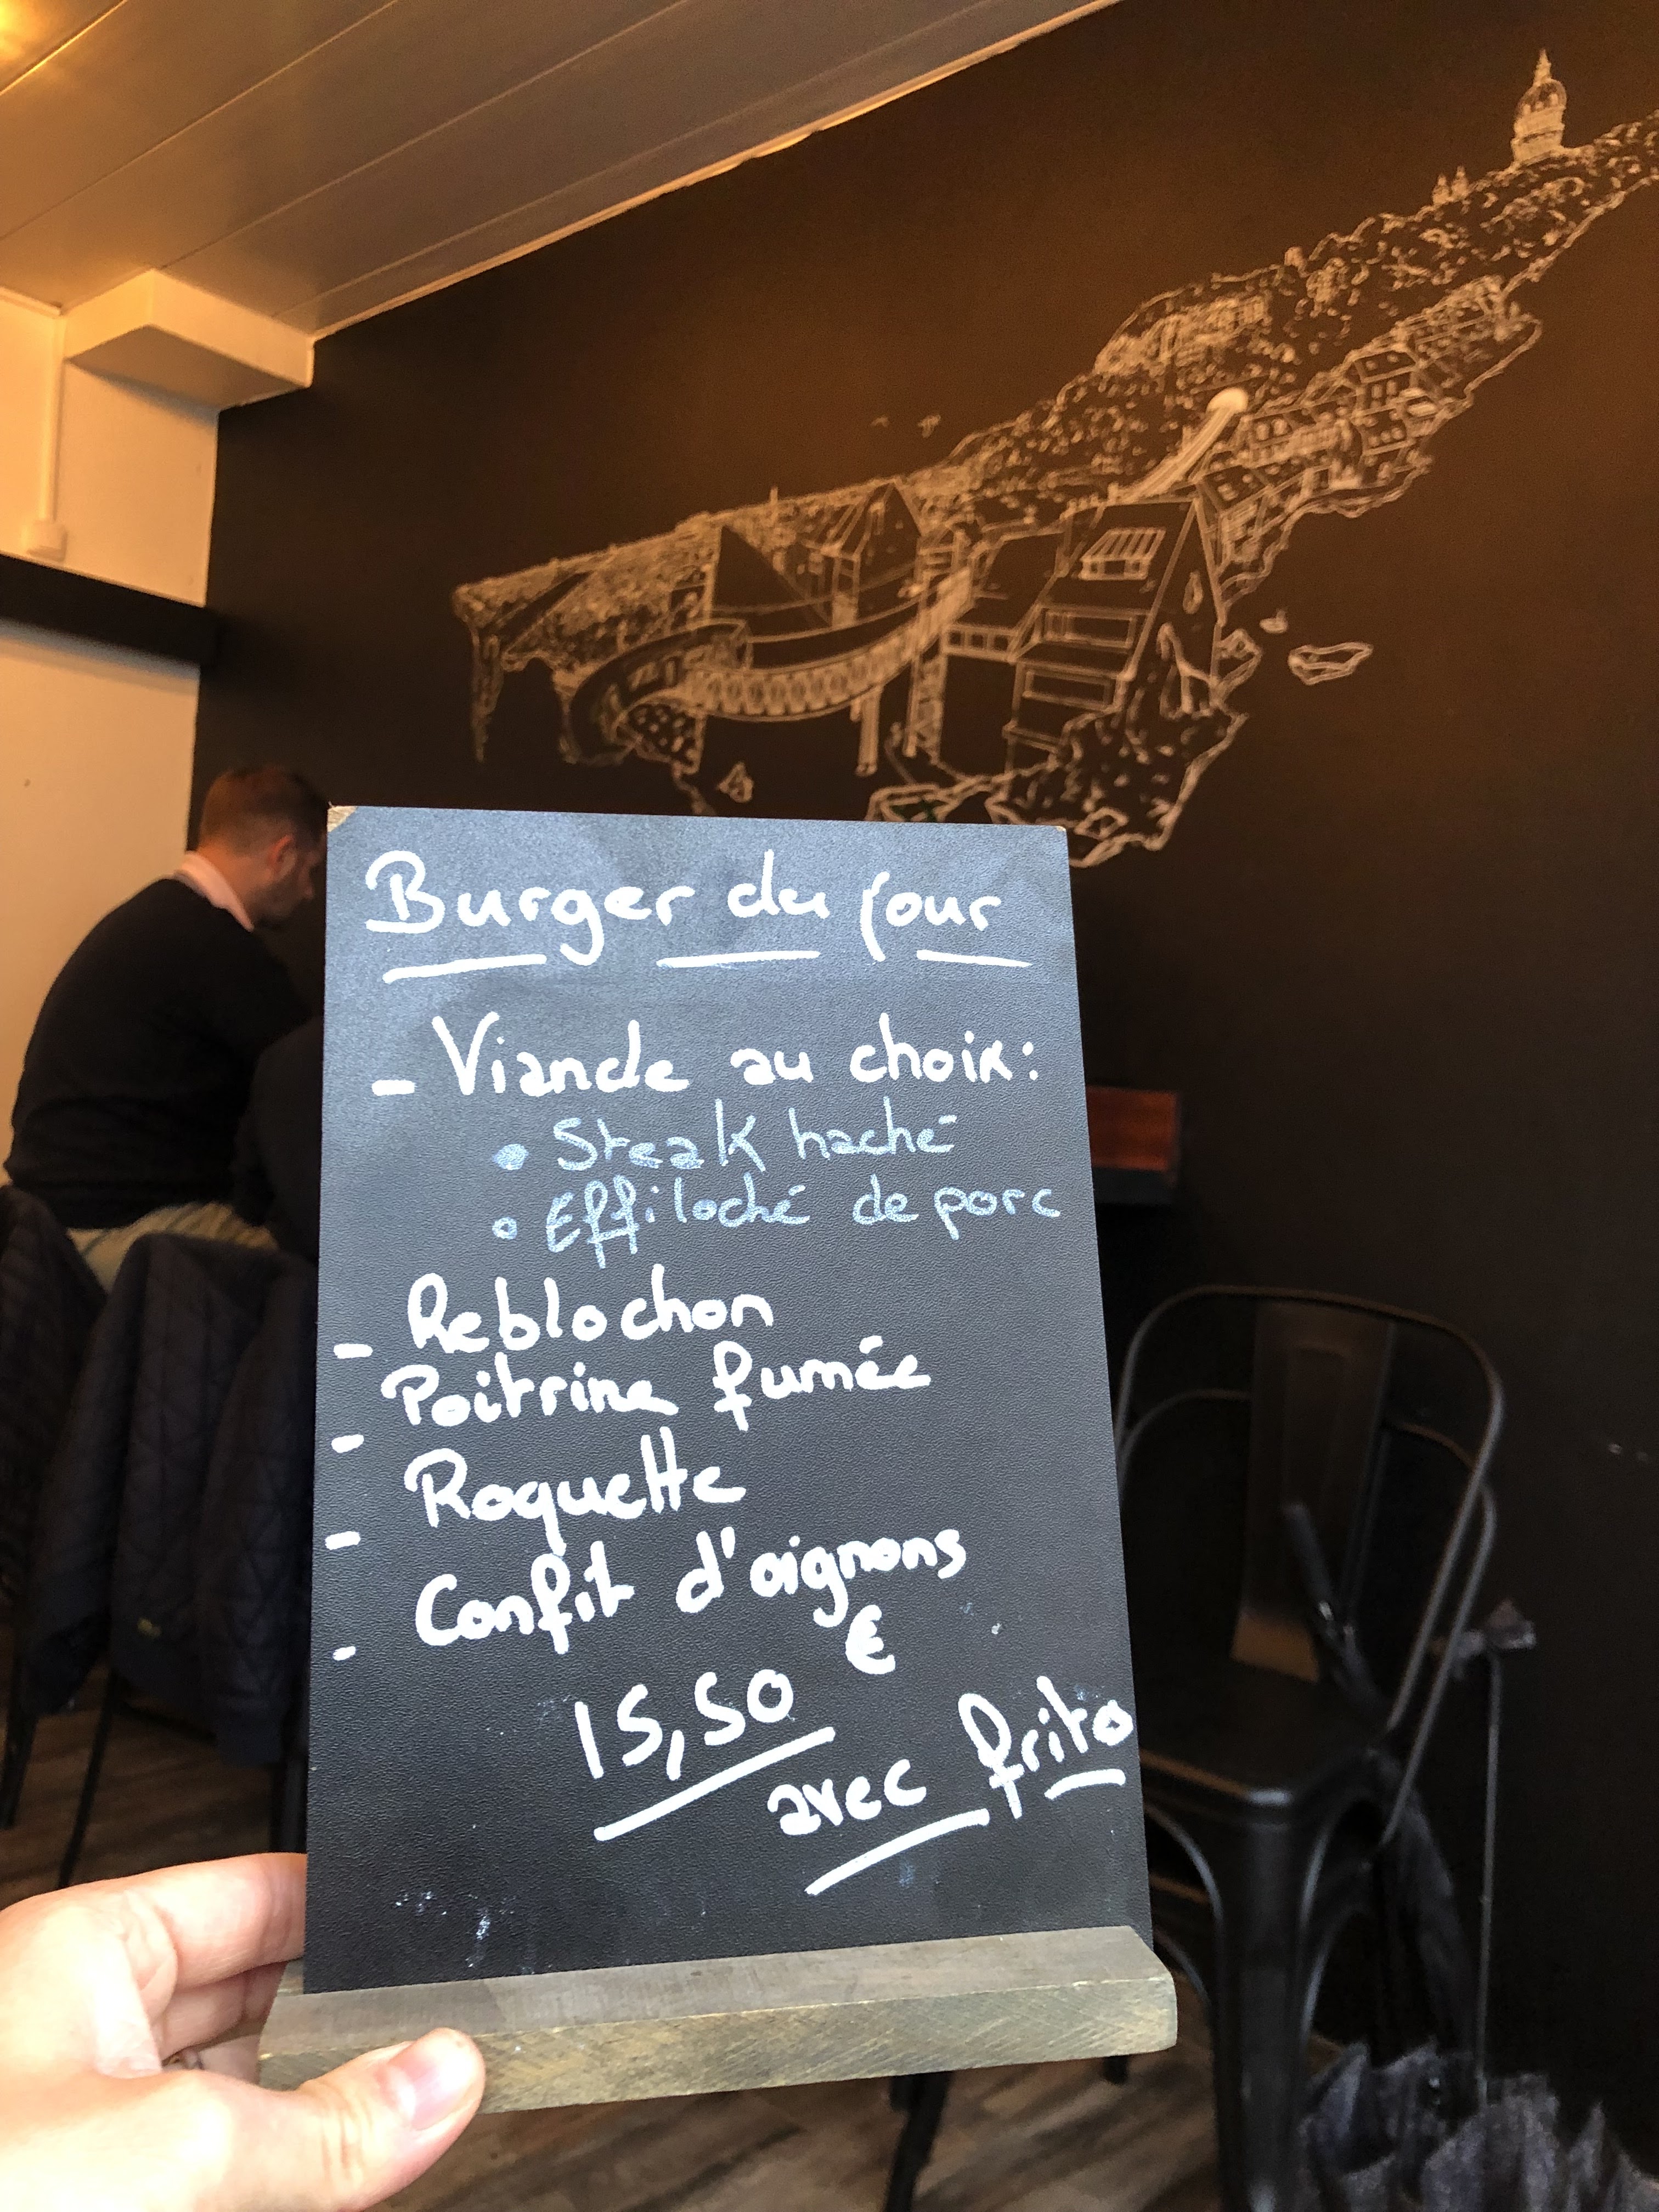 Burger du jour
- Viande au choix:
• Steak haché
• Effiloché de porc
- Reblochon
- Poitrine fumée
- Roquette
- Confit d'oignons
15,50 €
avec frito